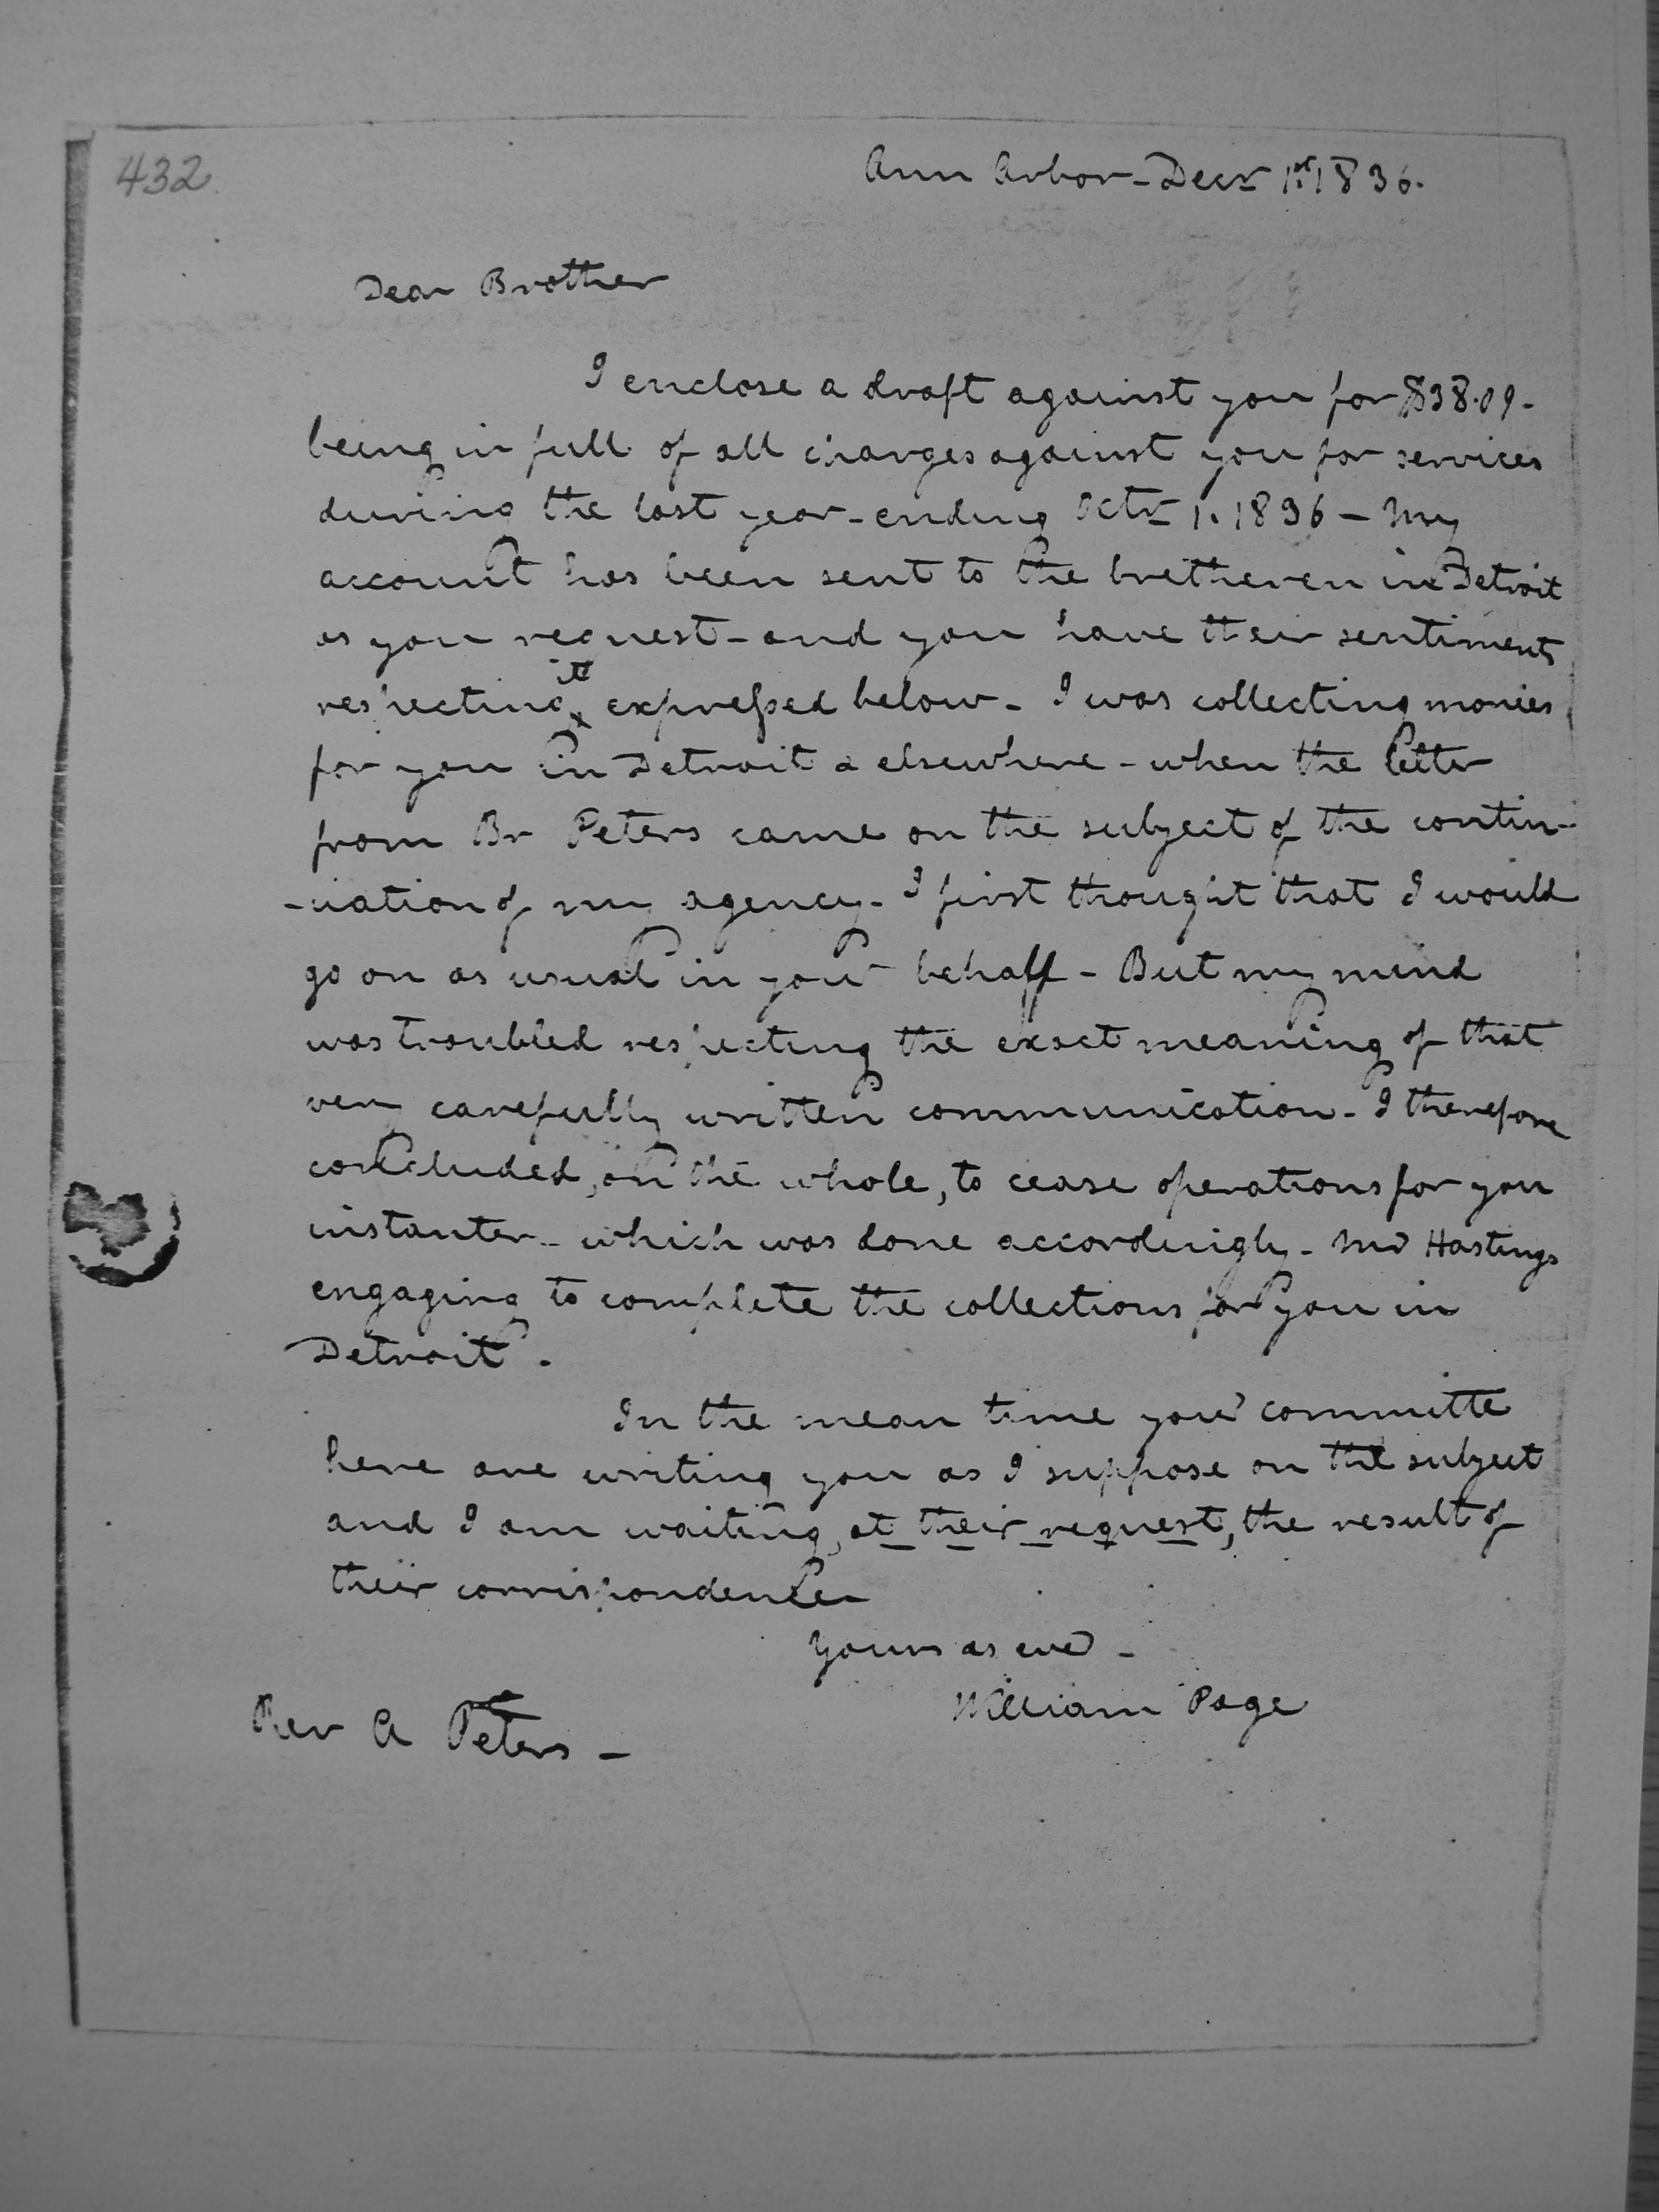 432.
Ann Arbor - Decr 1st 1836.
Dear Brother
I enclose a draft against you for $38.09.
being in full of all charges against you for services
during the last year - ending Octr 1. 1836 - My
account has been sent to the bretheren in Detroit
as you request - and you have their sentiments
it
respecting ‸ expressed below - I was collecting monies
for you in Detroit & elsewhere - when the letter
from Br Peters came on the subject of the contin-
-uation of my agency - I first thought that I would
go on as usual in your behalf - But my mind
was troubled respecting the exact meaning of that
very carefully written communication - I therefore
concluded, on the whole, to cease operations for you
instanter - which was done accordingly - Mr Hastings
engaging to complete the collections for you in
Detroit.
In the mean time your committe
here are writing you as I suppose on the subject
and I am waiting, at their request, the result of
their corrispondence
Yours as ever -
William Page
Rev A Peters -